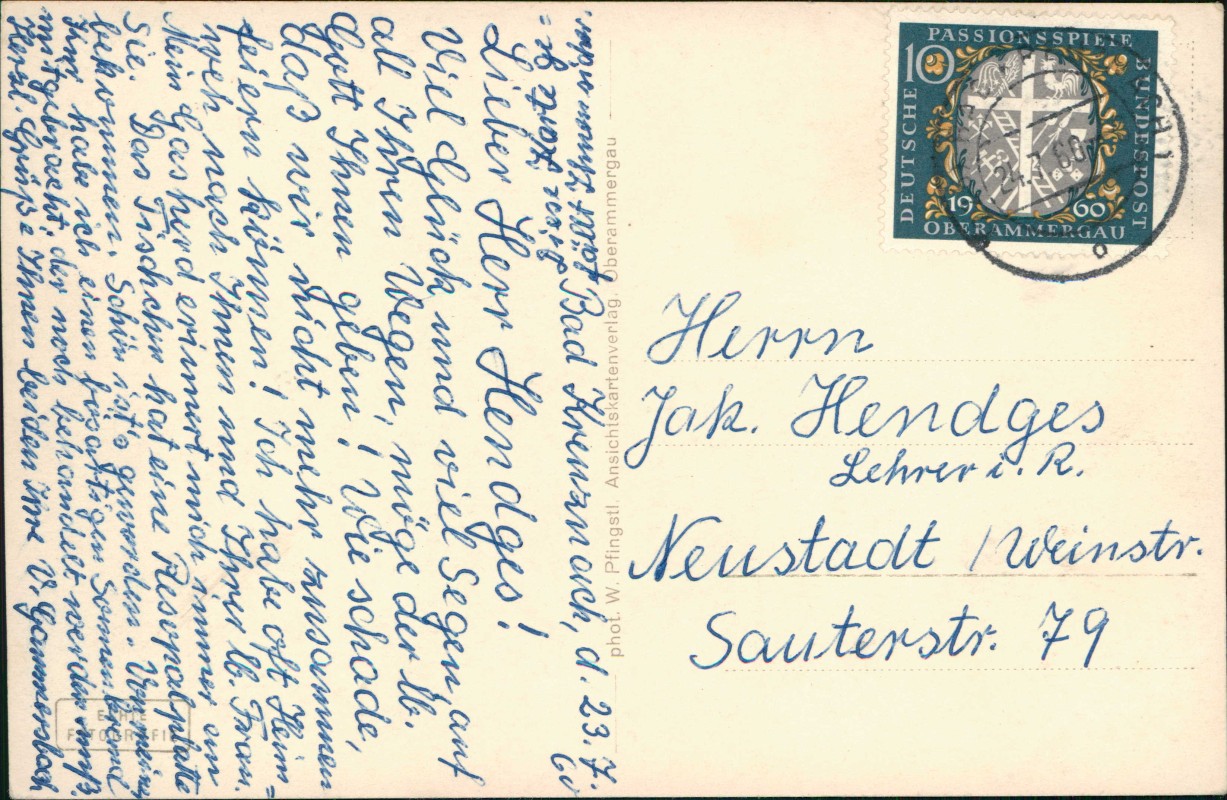 Bad Kreuznach, d. 23. 7. 60
Lieber Herr Hendges!
Viel Glück und viel Segen auf
all Ihren Wegen, möge der lb.
Gott Ihnen geben! Wie schade,
daß wir nicht mehr zusammen
feiern können! Ich habe oft Heim=
weh nach Ihnen und Ihrer lb. Frau.
Mein Gasherd erinnert mich immer an
Sie. Das Tischchen hat eine Resopalplatte
bekommen. Schön ist's geworden. Von meiner
habe ich einen bösartigen Sonnenbrand
mitgebracht, der noch behandelt werden muß.
Herzl. Grüße Ihnen beiden Ihre V. Gammersbach
ECHTE
FOTOGRAFIE
phot. W. Pfingstl. Ansichtskartenverlag, Oberammergau
PASSIONSSPIELE
10
DEUTSCHE
BUNDESPOST
1960
OBERAMMERGAU
Herrn
Jak. Hendges
Lehrer i. R.
Neustadt / Weinstr.
Sauterstr. 79